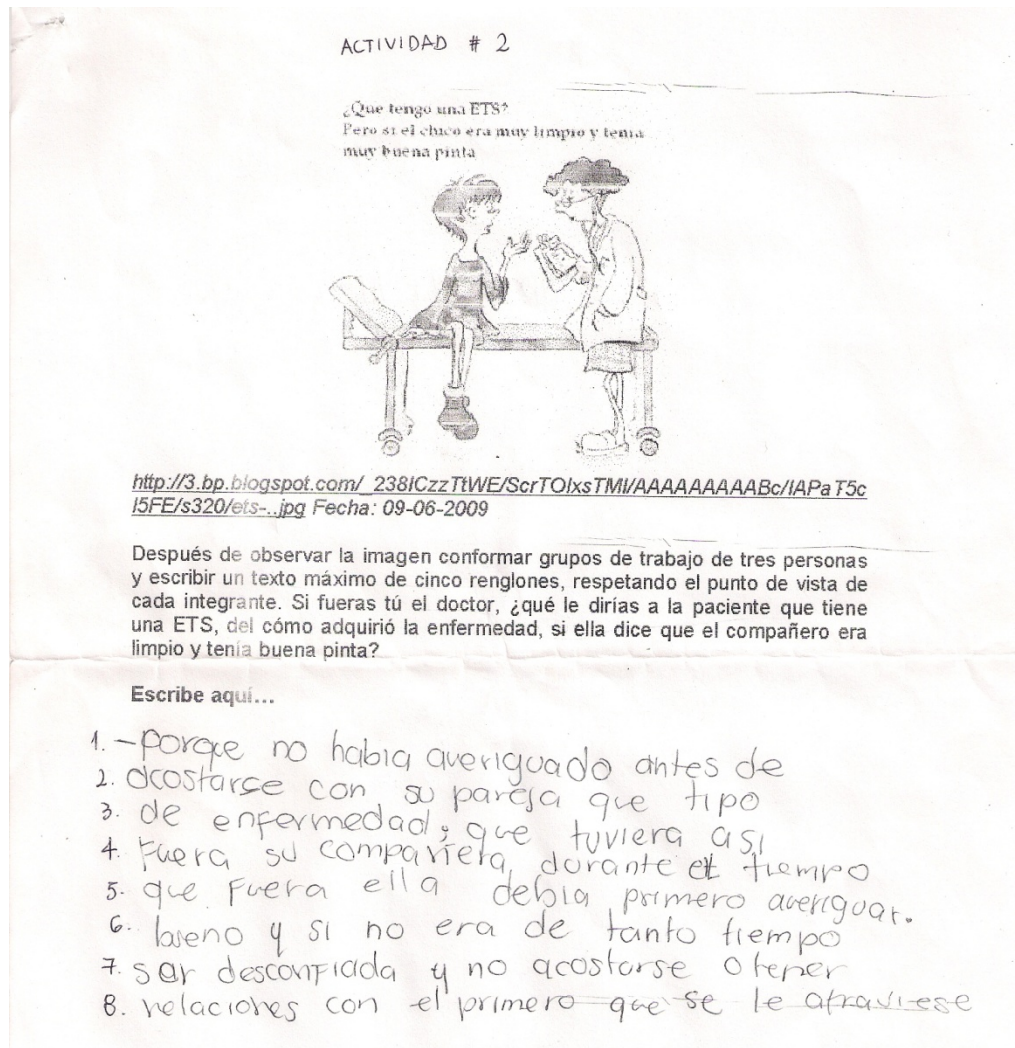 ACTIVIDAD # 2
¿Que tengo una ETS?
Pero si el chico era muy limpio y tenia
muy buena pinta
http://3.bp.blogspot.com/_238ICzzTtWE/ScrTOlxsTMI/AAAAAAAAABc/IAPaT5c
I5FE/s320/ets-..jpg Fecha: 09-06-2009
Después de observar la imagen conformar grupos de trabajo de tres personas
y escribir un texto máximo de cinco renglones, respetando el punto de vista de
cada integrante. Si fueras tú el doctor, ¿qué le dirías a la paciente que tiene
una ETS, del cómo adquirió la enfermedad, si ella dice que el compañero era
limpio y tenía buena pinta?
Escribe aquí...
1. - porque no habia averiguado antes de
2. acostarse con su pareja que tipo
3. de enfermedad, que tuviera asi
4. Fuera su compañera durante el tiempo
5. que fuera ella debia primero averiguar.
6. bueno y si no era de tanto tiempo
7. ser desconfiada y no acostarse o tener
8. relaciones con el primero que se le atraviese